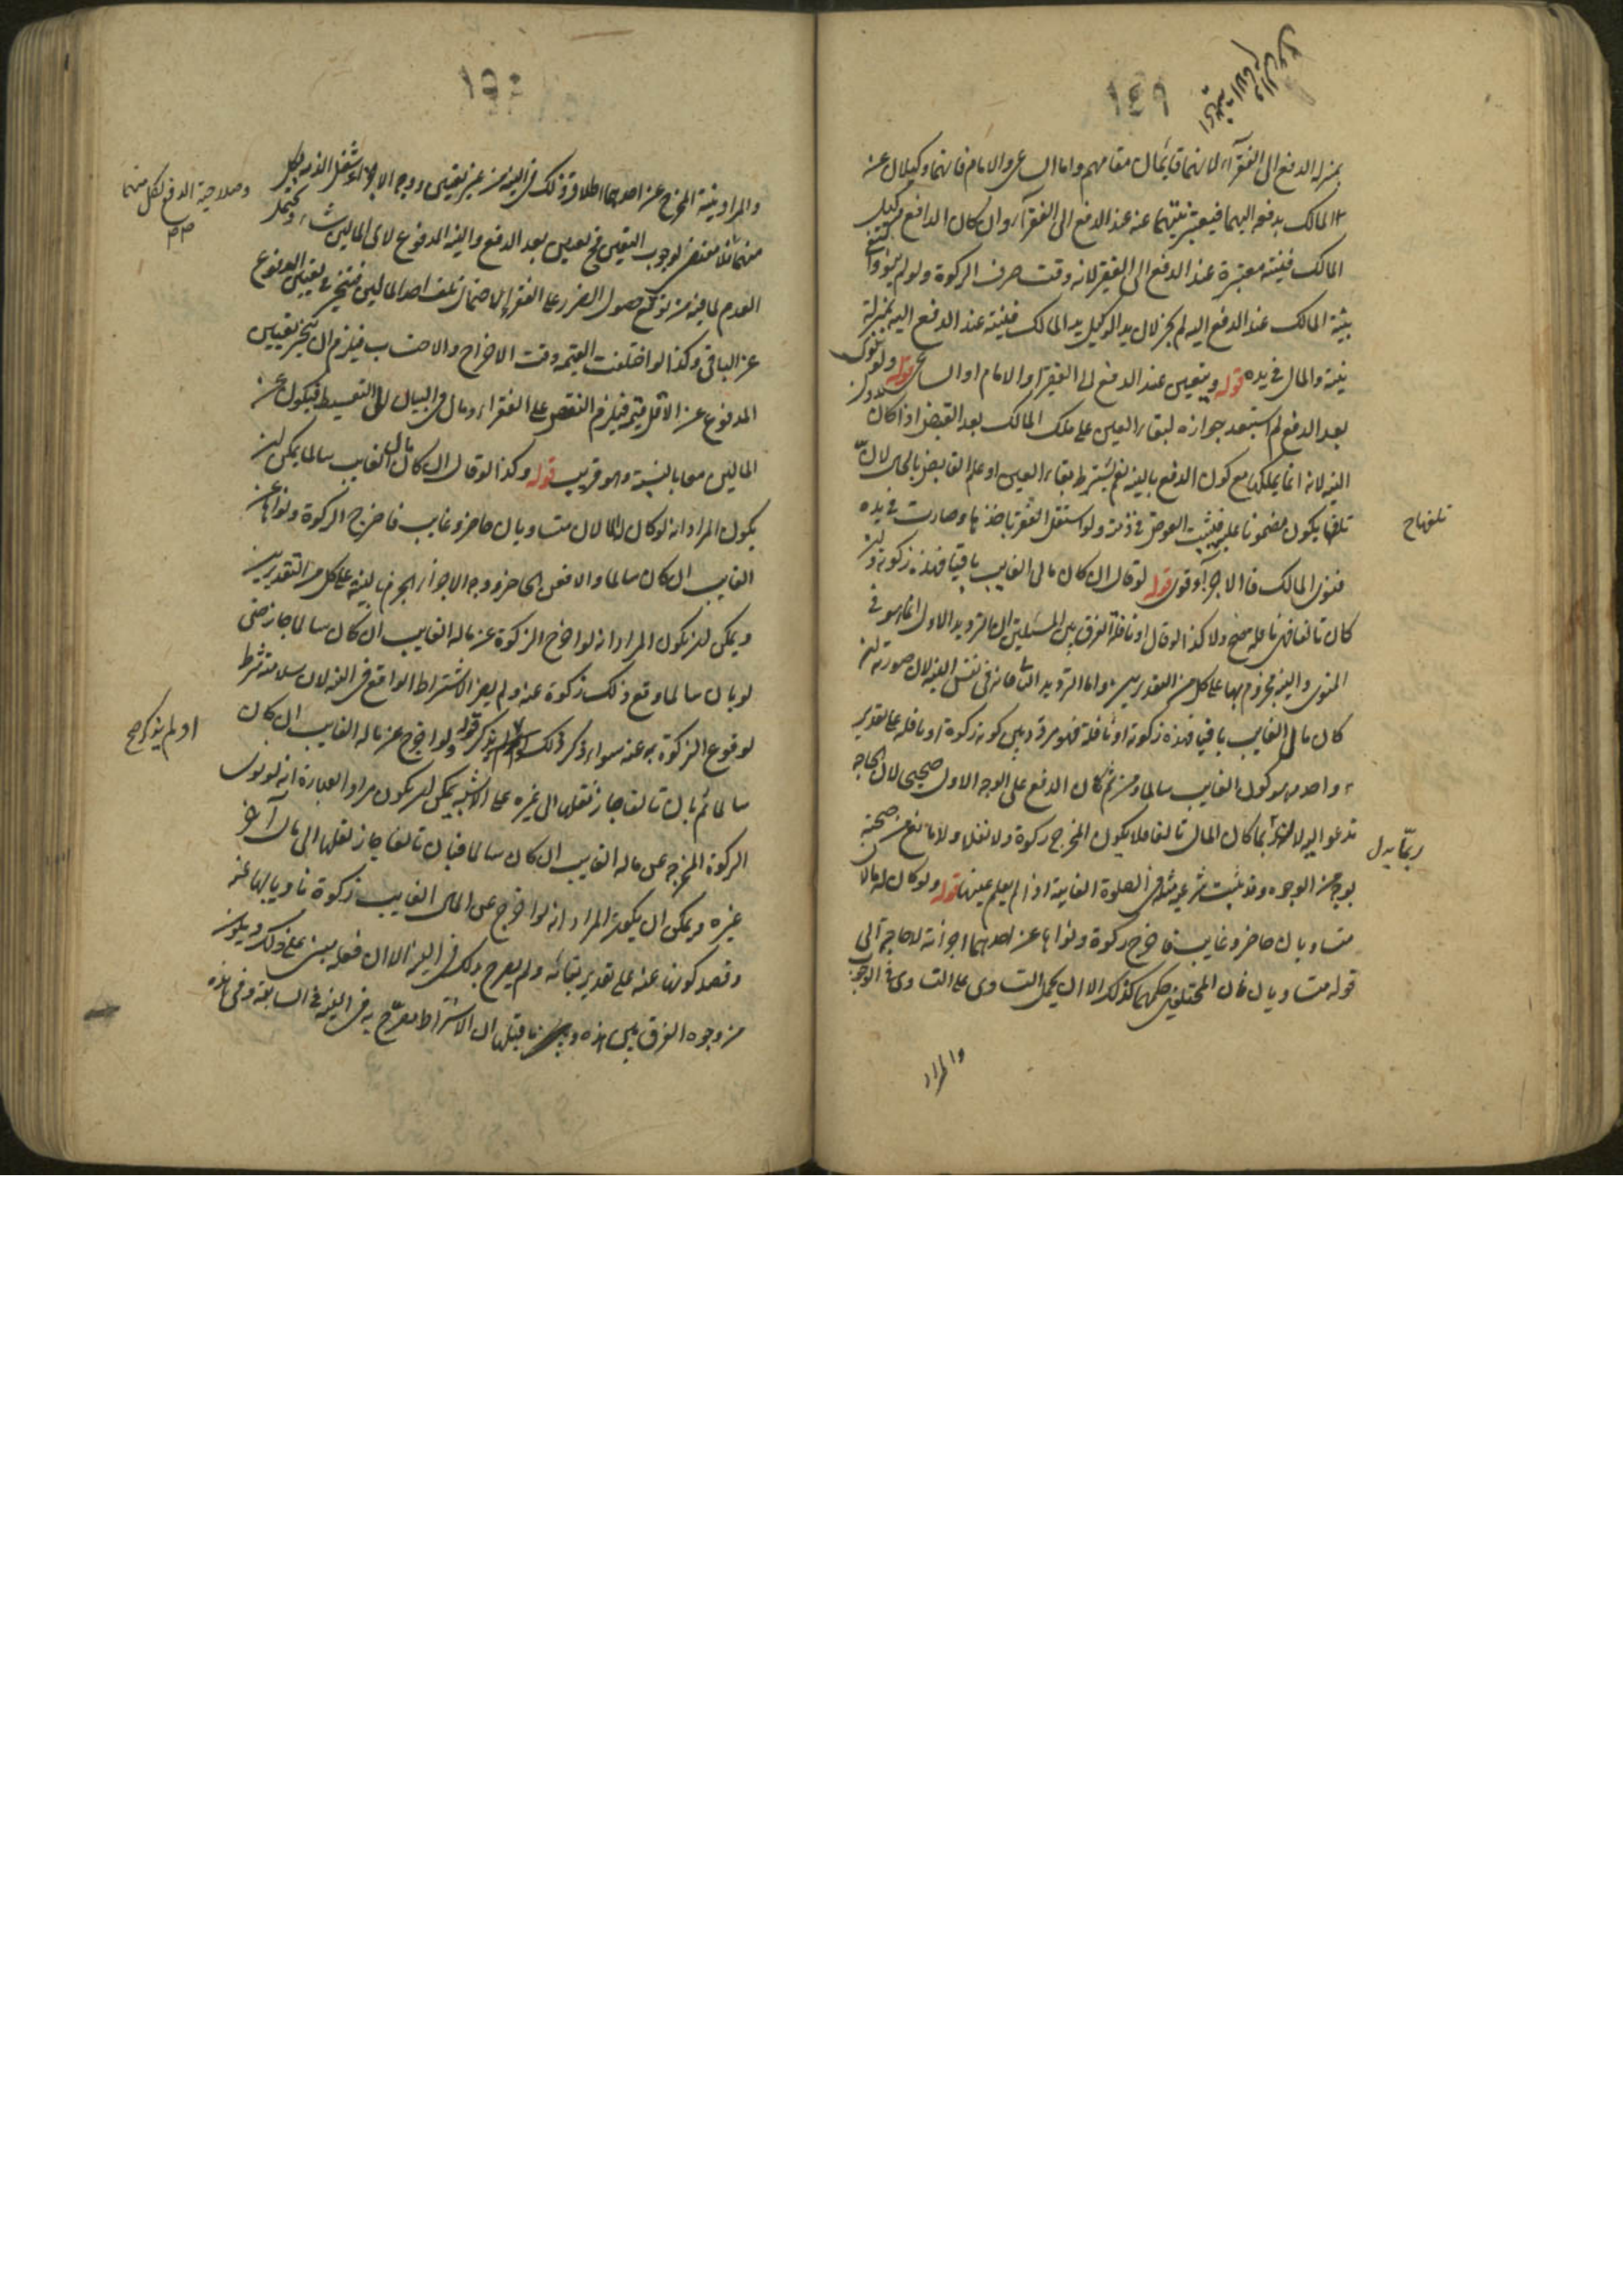 ١٤٩
بمنزلة الدفع الى الفقرآء لانهما قايمان مقامهم واما الساعى والامام فانهما وكيلان عن
المالك بدفعه اليهما فيعتبر نيتهما عنه عند الدفع الى الفقرآء وان كان الدافع وكيل
المالك فنيته معتبرة عند الدفع الى الفقير لانه وقت صرف الزكوة ولو لم ينو
بنية المالك عند الدفع اليه لم يجز لان يد الوكيل يد المالك فنيته عند الدفع اليه بمنزلة
نيته والمال فى يده قوله ويتعين عند الدفع الى الفقير او الامام او الساعى قوله ولو نوى
بعد الدفع لم استبعد جوازه لبقاء العين على ملك المالك بعد القبض اذا كان
النية لانه انما يملكها مع كون الدفع بالنية نعم يشترط بقاء العين او علم القابض بالحال لان
تلفها يكون مضمونا عليه فيثبت العوض فى ذمته ولو استقل الفقير باخذها وصارت فى يده
فنوى المالك فالاجزآء قوى قوله لو قال ان كان مالى الغايب باقيا فهذه زكوته وان
كان تالفا فهى نافلة صح ولا كذا لو قال او نافلة الفرق بين المسئلتين ان الترديد الاول انما هو فى
المنوى والنية مجزوم بها على كل من التقديرين واما الترديد الثانى فانه فى نفس النية لان صورته ان
كان مالى الغايب باقيا فهذه زكوته او نافلة فهو مردد بين كونه زكوة او نافلة على تقدير
واحد وهو كون الغايب سالما ومن ثم كان الدفع على الوجه الاول صحيحا لان الحاجة
تدعو اليه لانه ربما كان المال تالفا فلا يكون المخرج زكوة ولا نفلا ولا مانع من صحته
بوجه من الوجوه وقد ثبت شرعية مثله فى الصلوة الفايتة اذا لم يعلم عينها قوله ولو كان له مالان
متساويان حاضر وغايب فاخرج زكوة ونواها عن احدهما اجزأته لا حاجة الى
قوله متساويان فان المختلفين حكمهما كذلك الا ان يحمل التساوى على التساوى فى الوجوب
والمراد
تلفها ح
ربما بدل
١٥٠
والمراد بنية المخرج عن احدهما اطلاق ذلك فى النية من غير تعيين ووجه الاجزآء شغل الذمة بكل
منهما فلا مقتضى لوجوب التعيين فح تعيين بعد الدفع والنية المدفوع لاى المالين شاء ويحتمل
العدم لما فيه من توقع حصول الضرر على الفقرآء لاحتمال تلف احد المالين فيتخير فى تعيين المدفوع
عن الباقى وكذا لو اختلفت القيمة وقت الاخراج والاحتساب فيلزم ان يخير تعيين
المدفوع عن الاقل قيمة فيلزم النقص على الفقرآء ومال فى البيان الى التقسيط فيكون عن
المالين معا بالنسبة وهو قريب قوله وكذا لو قال ان كان مالى الغايب سالما يمكن ان
يكون المراد انه لو كان له مالان متساويان حاضر وغايب فاخرج الزكوة ونواها عن
الغايب ان كان سالما والا فعن الحاضر ووجه الاجزآء الجزم بالنية على كل من التقديرين
ويمكن ان يكون المراد انه لو اخرج الزكوة عن ماله الغايب ان كان سالما جاز حتى
لو بان سالما وقع ذلك زكوة عنه ولم يضر الاشتراط الواقع فى النية لان سلامته شرط
لوقوع الزكوة به عنه سواء ذكر ذلك ام لم يذكر قوله ولو اخرج عن ماله الغايب ان كان
سالما ثم بان تالفا جاز نقلها الى غيره على الاشبه يمكن ان يكون مراد العبارة انه لو نوى
الزكوة المخرجة عن ماله الغايب ان كان سالما فبان تالفا جاز نقلها الى مال آخر
غيره ويمكن ان يكون المراد انه لو اخرج عن المال الغايب زكوة ناويا لها عنه
وقصد كونها عنه على تقدير بقائه ولم يصرح بذلك فى النية الا ان فعله مبنى على ذلك ويكون
من وجوه الفرق بين هذه وما قبلها ان الاشتراط مصرح به فى النية فى السابقة وفى هذه
وصلاحية الدفع لكل منهما
او لم يذكر صح